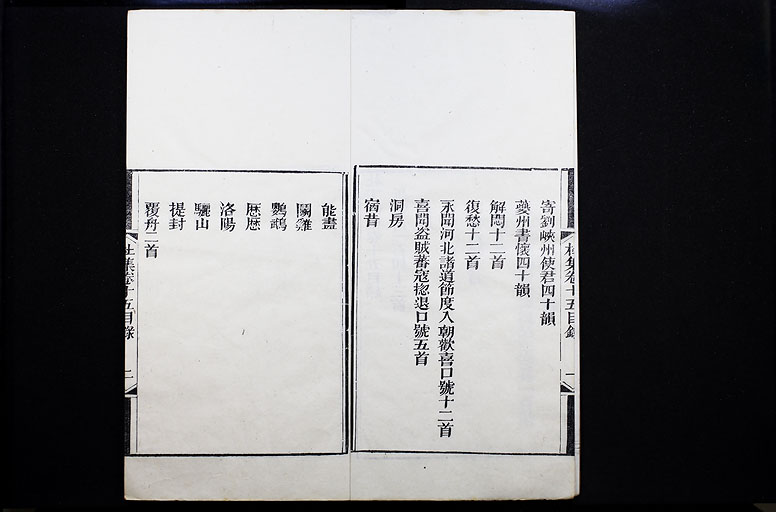 杜集卷十五目錄 一
寄劉峽州使君四十韻
夔州書懷四十韻
解悶十二首
復愁十二首
承聞河北諸道節度入朝歡喜口號十二首
喜聞盜賊蕃寇揔退口號五首
洞房
宿昔
能畫
鬭雞
鸚鵡
歷歷
洛陽
驪山
提封
覆舟二首
杜集卷十五目錄 二